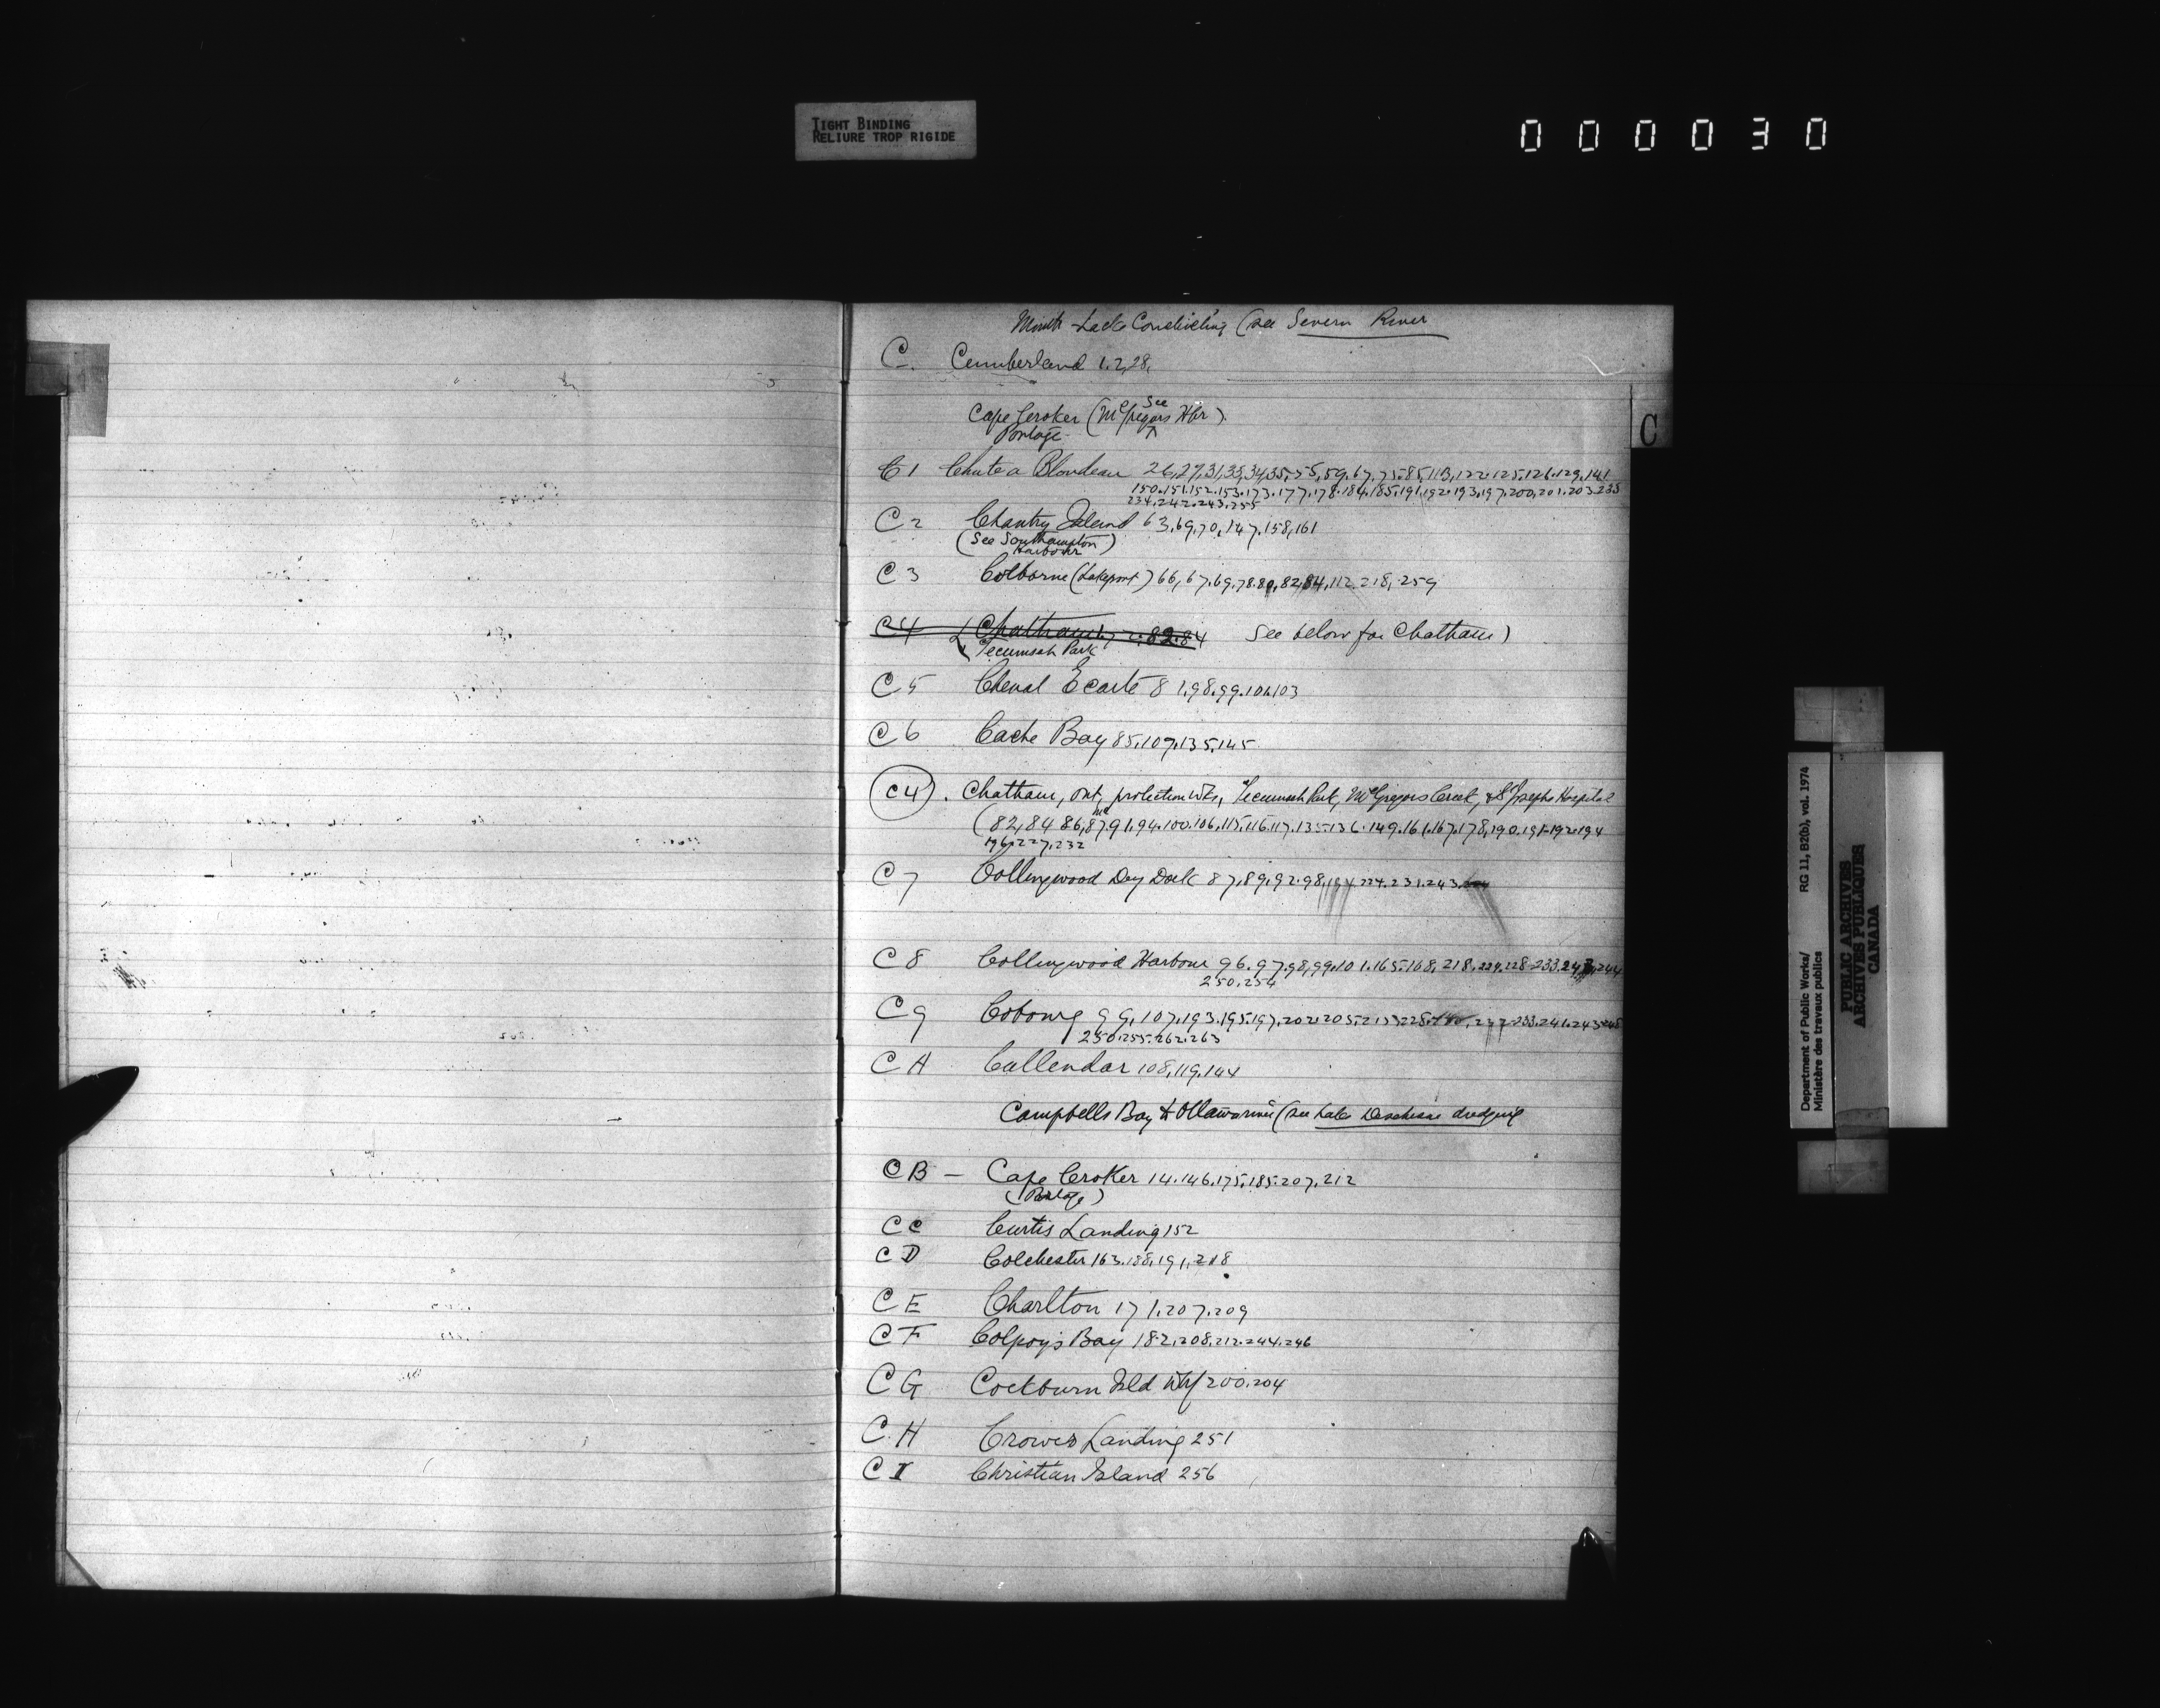 TIGHT BINDING
RELIURE TROP RIGIDE
000030
Lake Couchiching (see Severn River
C. Cumberland 1.2,28,
See
Cape Croker (McGregors Hbr).
Portage
C
C1 Chute a Blondeau 26,27,31,33,34,35,55,59,67,75.85,113,122.125.126.129,141
150.151.152.153.173.177.178.184.185.191.192.193.197.200,201.203.233
234.242.243.255
C2 Chantry Island 63,69,70,147.158,161
(See Southampton
Harbour)
C3 Colborne (Lakeport) 66,67.69,78.80,82,84,112.218,259
C4 (Chatham 82.84 See below for Chatham)
Tecumseh Park
C5 Chenal Ecarte 81,98,99.101.103
C6 Cache Bay 85,107,135,145
C4. Chatham, Ont, protection wks, Tecumseh Park, McGregors Creek, & St Josephs Hospital
(82,84 86,87,91,94.100.106.115.116.117.135.136.149.161.167.178,190.191.192.194
196.227.232
C7 Collingwood Dry Dock 87,89,92.98,194 224.231.243.
C8 Collingwood Harbour 96.97.98,99.101.165.168,218,224.228.233.243,244
250.254
C9 Cobourg 99,107.193.195.197.202.205.
250.255.262.263
CA Callendar 108,119,144
Campbells Bay to (see Lake Deschene dredging
CB — Cape Croker 14.146.175.185.207,212
(Portage)
CC Curtis Landing 152
CD Colchester 163.188,191,218
CE Charlton 171.207.209
CF Colpoys Bay 182,208,212.244.246
CG Cockburn Isld Whf 200,204
C.H Crowes Landing 251
CI Christian Island 256
Department of Public Works/ RG 11, B2(b), vol. 1974
Ministère des travaux publics
PUBLIC ARCHIVES
ARCHIVES PUBLIQUES
CANADA